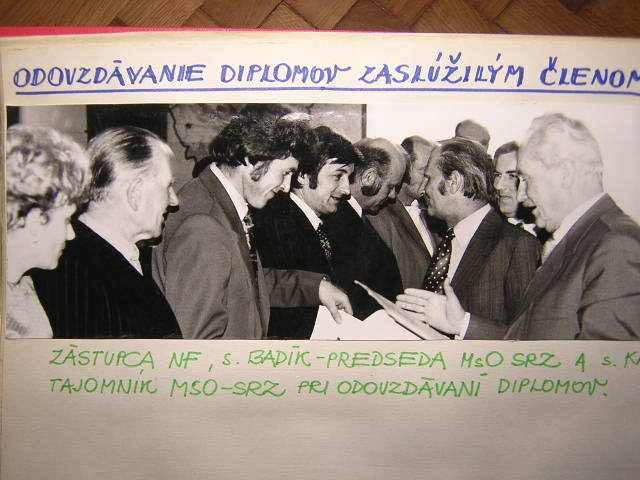 ODOVZDÁVANIE DIPLOMOV ZASLÚŽILÝM ČLENOM
ZÁSTUPCA NF, s. BADÍK - PREDSEDA MsO SRZ A s. KA
TAJOMNÍK MSO-SRZ PRI ODOVZDÁVANÍ DIPLOMOV.